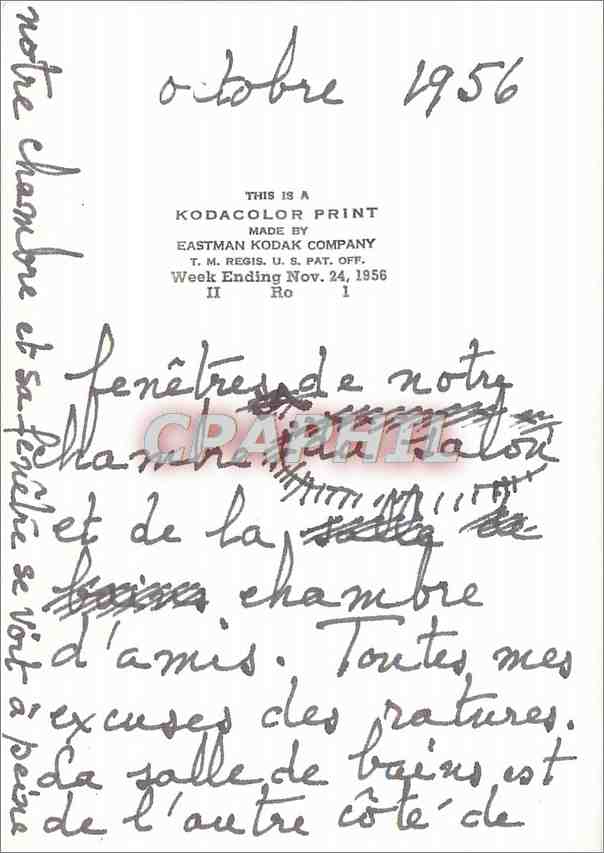 octobre 1956
THIS IS A
KODACOLOR PRINT
MADE BY
EASTMAN KODAK COMPANY
T. M. REGIS. U. S. PAT. OFF.
Week Ending Nov. 24, 1956
II Ro 1
fenêtres de notre
chambre du salon
CPAPHIL
et de la salle de
bains chambre
d'amis. Toutes mes
excuses des ratures.
La salle de bains est
de l'autre côté de
notre chambre et sa fenêtre se voit à peine